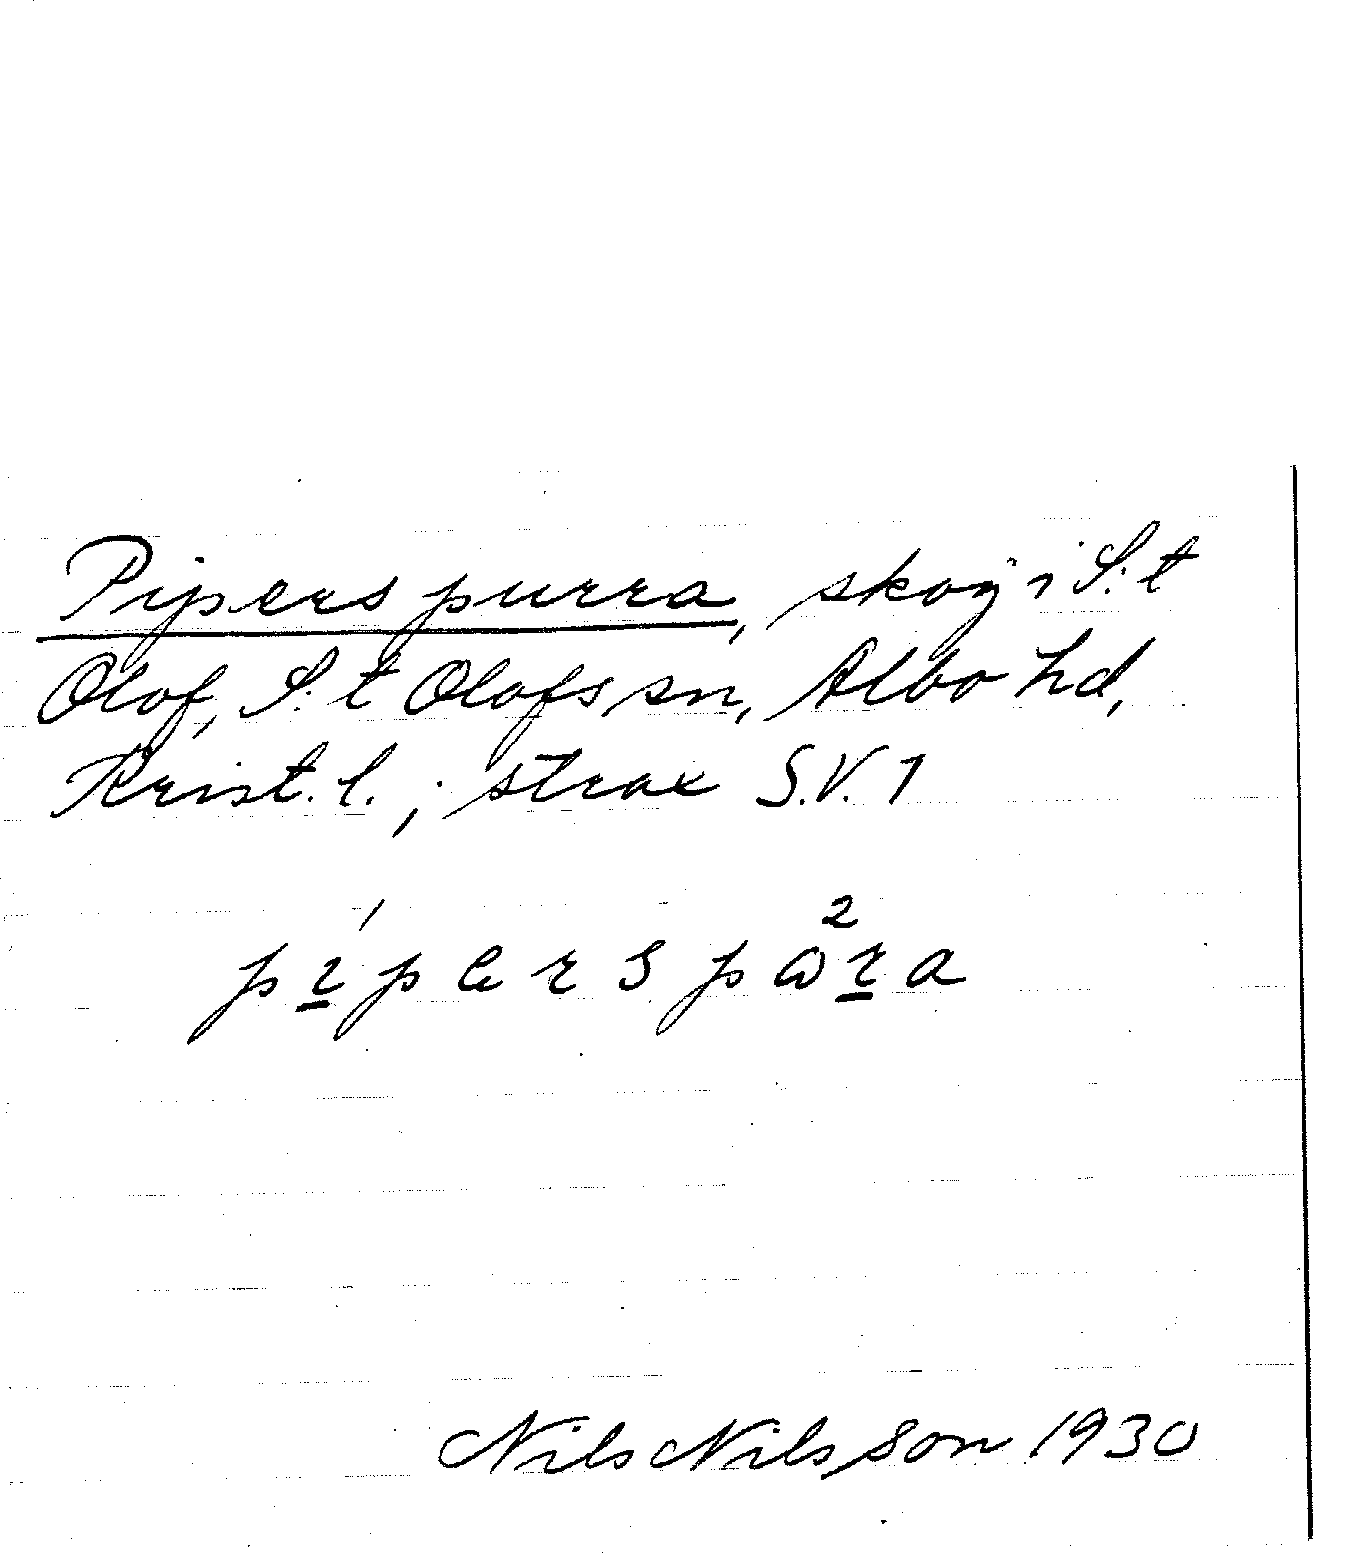 Piperspurra, skog i S:t
Olof, S:t Olofs sn, Albo hd,
Krist. l.; strax S.V. 1
pɩ̱́persp𝜔²ṟa
Nils Nilsson 1930